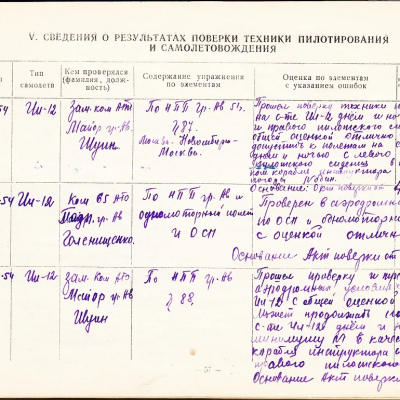 V. СВЕДЕНИЯ О РЕЗУЛЬТАТАХ ПОВЕРКИ ТЕХНИКИ ПИЛОТИРОВАНИЯ
И САМОЛЕТОВОЖДЕНИЯ
Тип
самолета
Кем проверялся
(фамилия, долж-
ность)
Содержание упражнения
по элементам
Оценка по элементам
с указанием ошибок
54
Ил-12
зам. ком АТО
Майор гр. Ав.
Щукин.
По НПП гр. Ав 51г.
§ 87.
Москва-Новосибирск-
Москва.
Прошел поверку техники
на с-те Ил-12 днём и
и правого пилотского
общей оценкой отлично
допустить к полетам на
днём и ночью с левого
пилотского сидения в
ком корабля инструктора
погоды
Основание:
-54
Ил-12
Ком 65 АТО
Подп. гр. Ав
Голенищенко.
По НПП гр. Ав и
одномоторный полет
и ОСП
Проверен в аэродромн
по ОСП и одномоторн
с оценкой отлично
Основание Акт поверки от
-54
Ил-12
зам. Ком АТО
Майор гр. Ав
Щукин
По НПП гр. Ав
§ 88.
Прошел проверку
аэродромных условиях
Ил-12 с общей оценкой
Может продолжать
с-те Ил-12 днём и
минимуму М в качес
корабля инструктора
правого пилотского
Основание Акт поверки
- 57 -